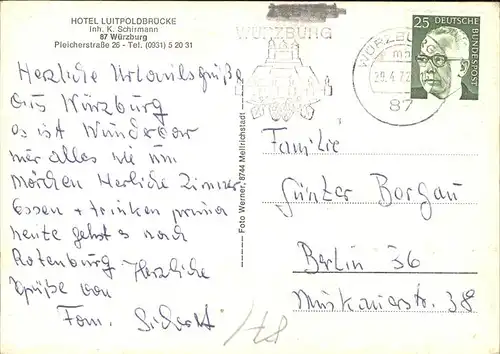 HOTEL LUITPOLDBRÜCKE
Inh. K. Schirmann
87 Würzburg
Pleicherstraße 26 - Tel. (0931) 5 20 31
Herzliche Urlaubsgrüße
aus Würzburg
es ist Wunderbar
mir alles wie im
märchen Herliche Zimmer
Essen + trinken prima
heute gehts nach
Rotenburg Herzliche
Grüße von
Fam.
Foto Werner, 8744 Mellrichstadt
WÜRZBURG
WÜRZBURG
87
25 DEUTSCHE
BUNDESPOST
Familie
Günter Bergau
Berlin 36
Muskauerstr. 38